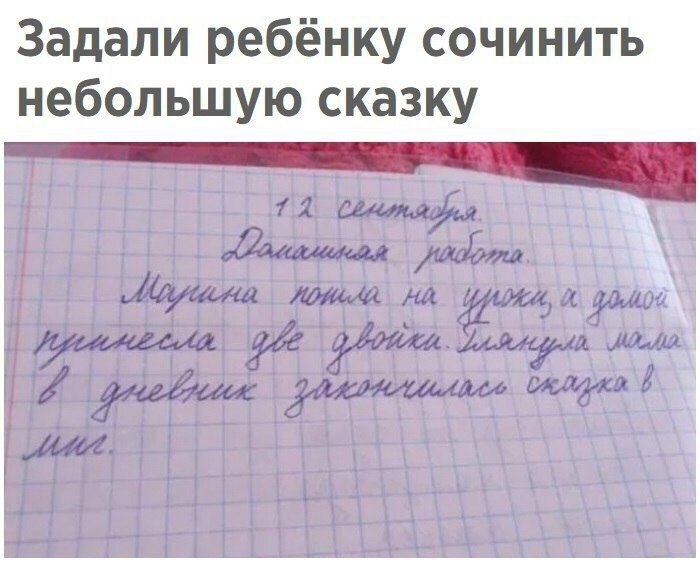 Задали ребёнку сочинить
небольшую сказку
12 сентября.
Домашная работа.
Марина пошла на уроки, а домой
принесла две двойки. Глянула мама
в дневник закончилась сказка в
миг.